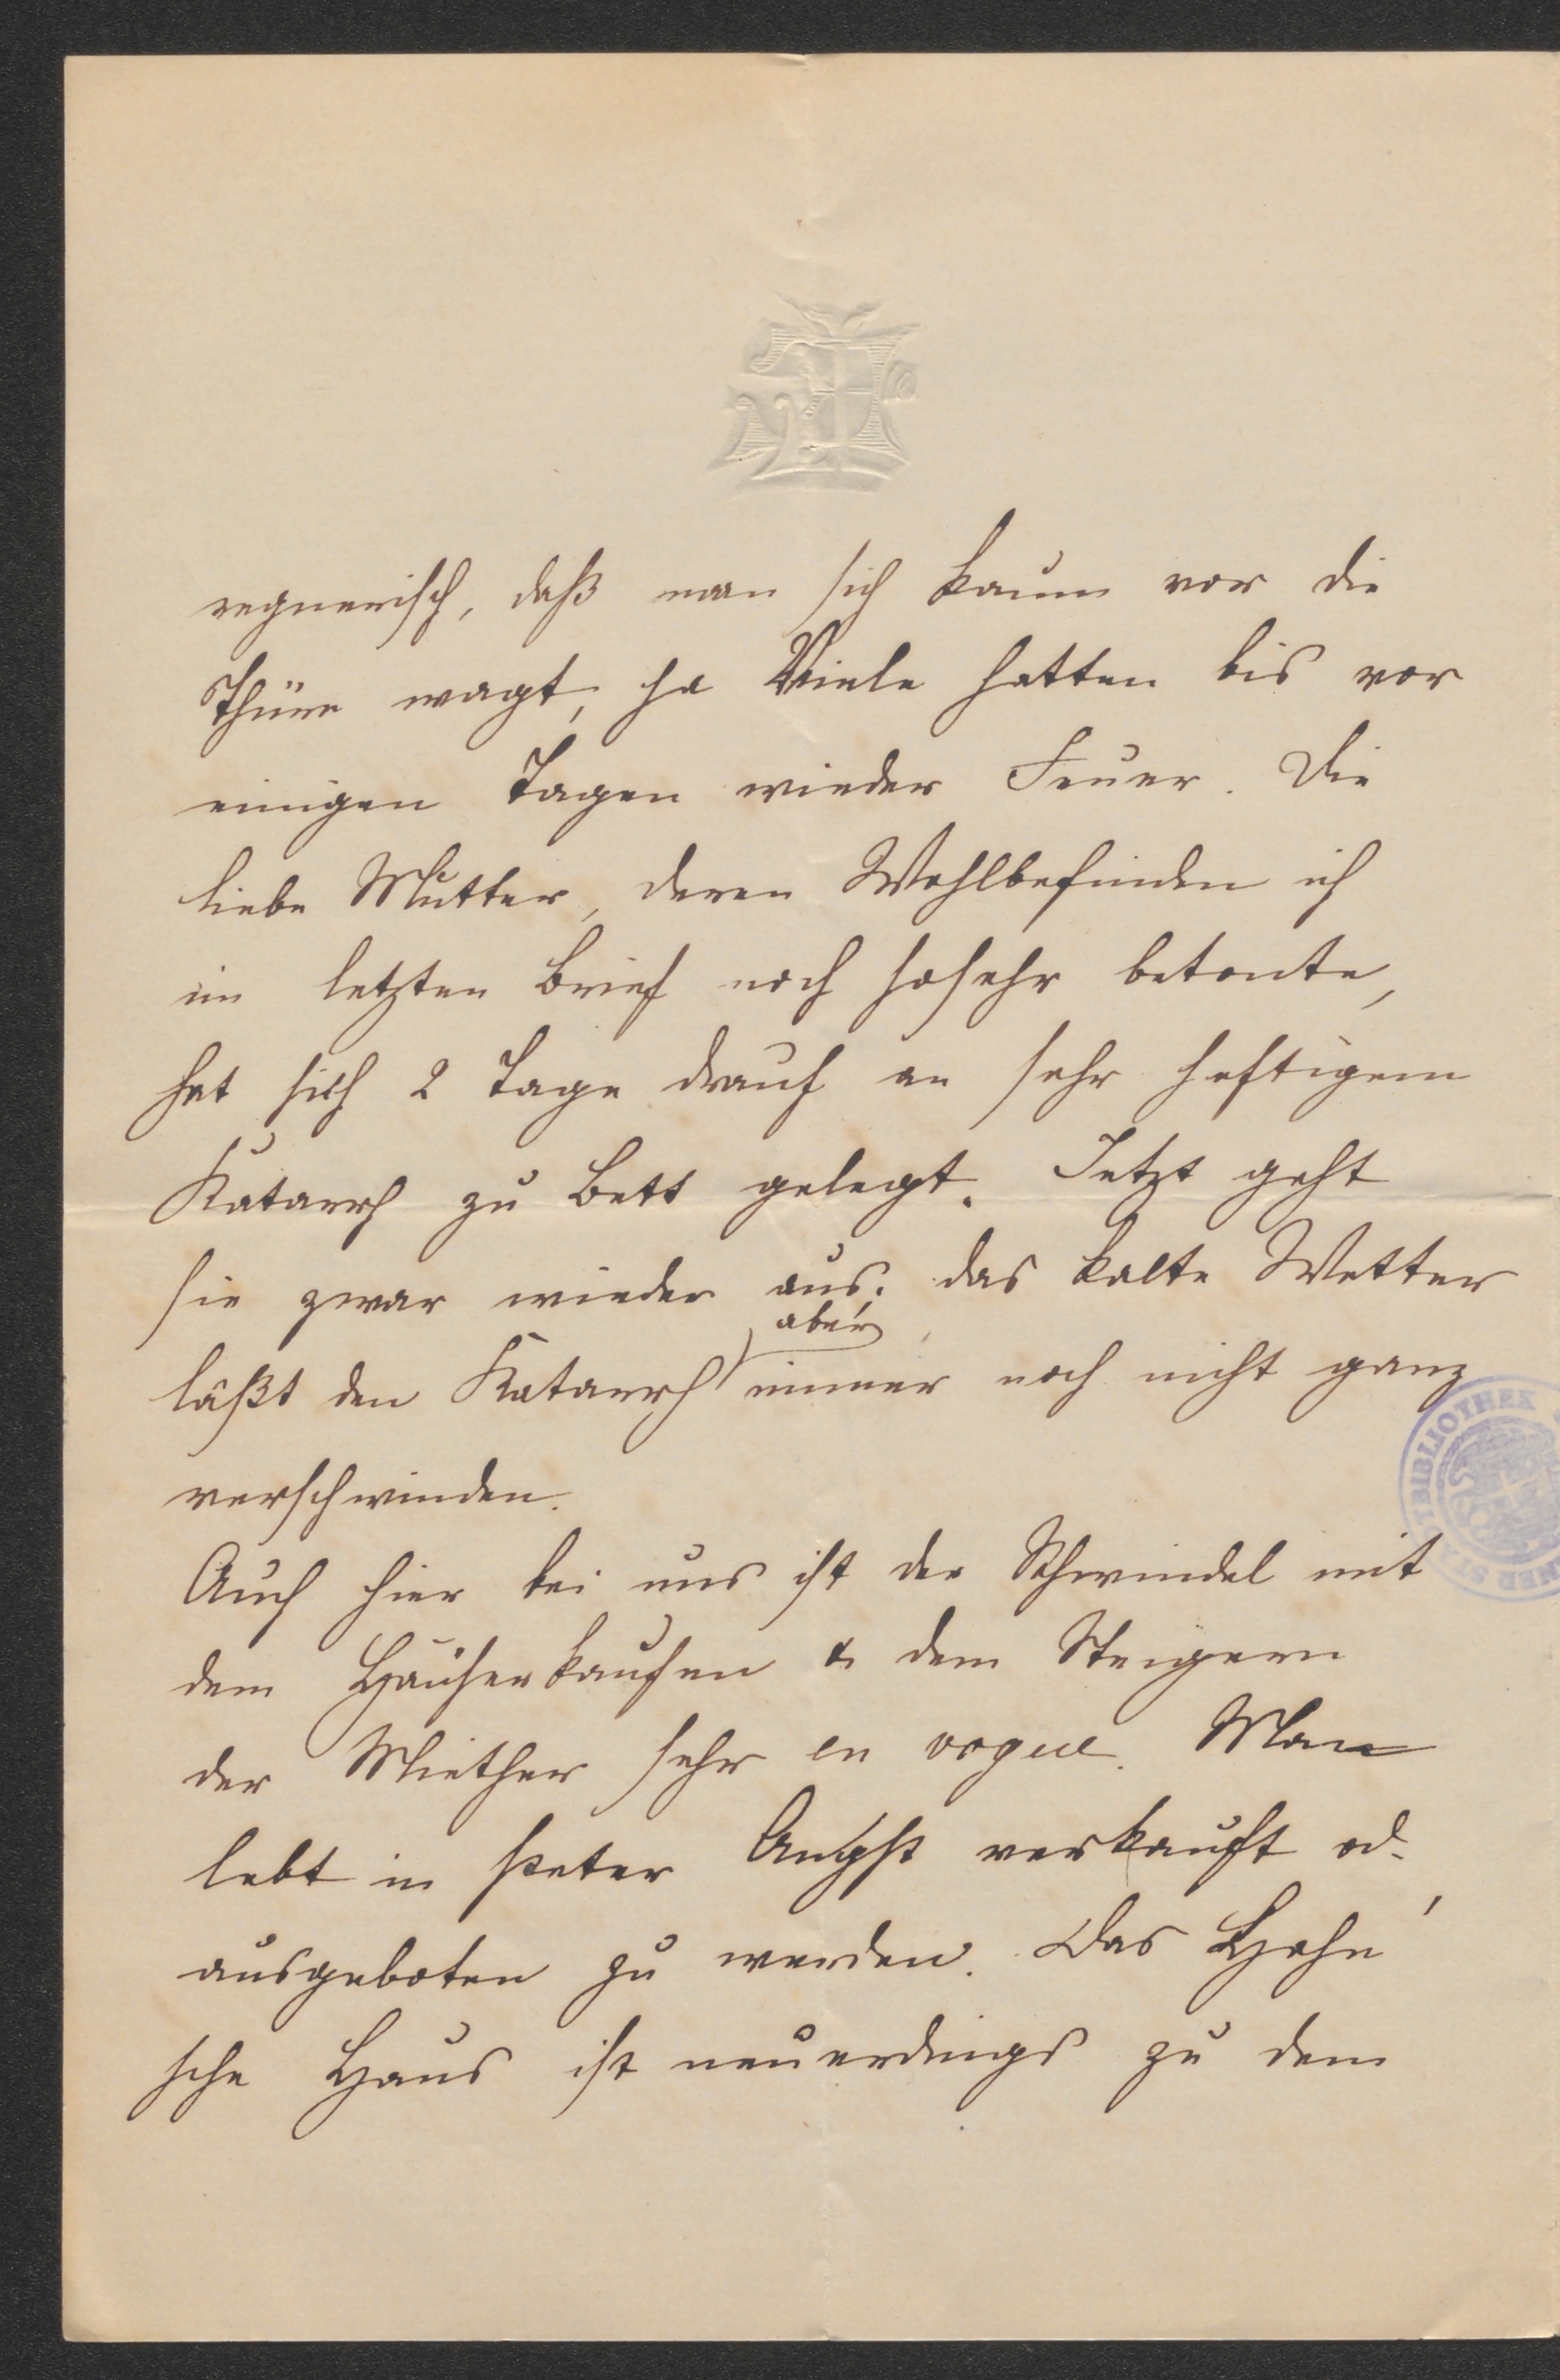 regnerisch, daß man sich kaum vor die
Thüre wagt, ja Viele hatten bis vor
einigen Tagen wieder Feuer. Die
liebe Mutter, deren Wohlbefinden ich
im letzten Brief noch sosehr betonte,
hat sich 2 Tage drauf an sehr heftigem
Katarrh zu Bett gelegt. Jetzt geht
sie zwar wieder aus; das kalte Wetter
aber
läßt den Katarrh immer noch nicht ganz
verschwinden.
Auch hier bei uns ist der Schwindel mit
dem Häuserkaufen & dem Steigern
der Miether sehr en vogue. Man
lebt in steter Angst verkauft od.
ausgeboten zu werden. Das Hohn'
sche Haus ist neuerdings zu dem
BIBLIOTHEK